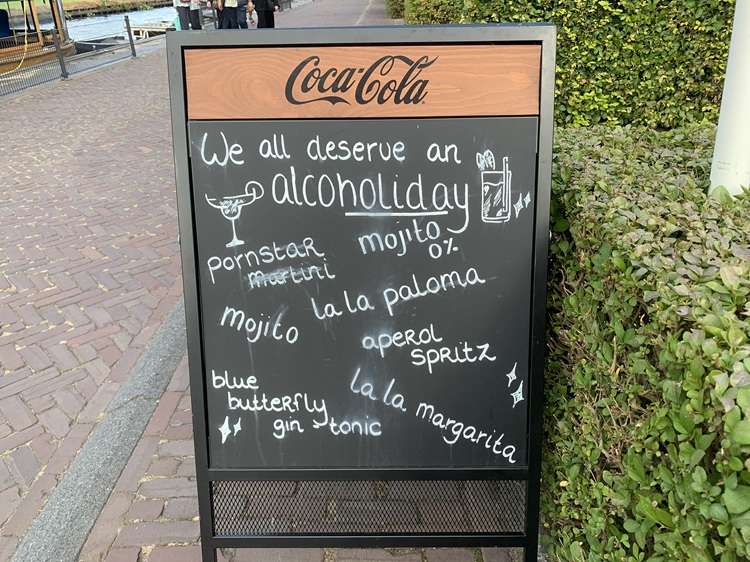 Coca-Cola
We all deserve an
alcoholiday
pornstar
martini
mojito
0%
la la paloma
mojito
aperol
spritz
blue
butterfly
gin - tonic
la la margarita